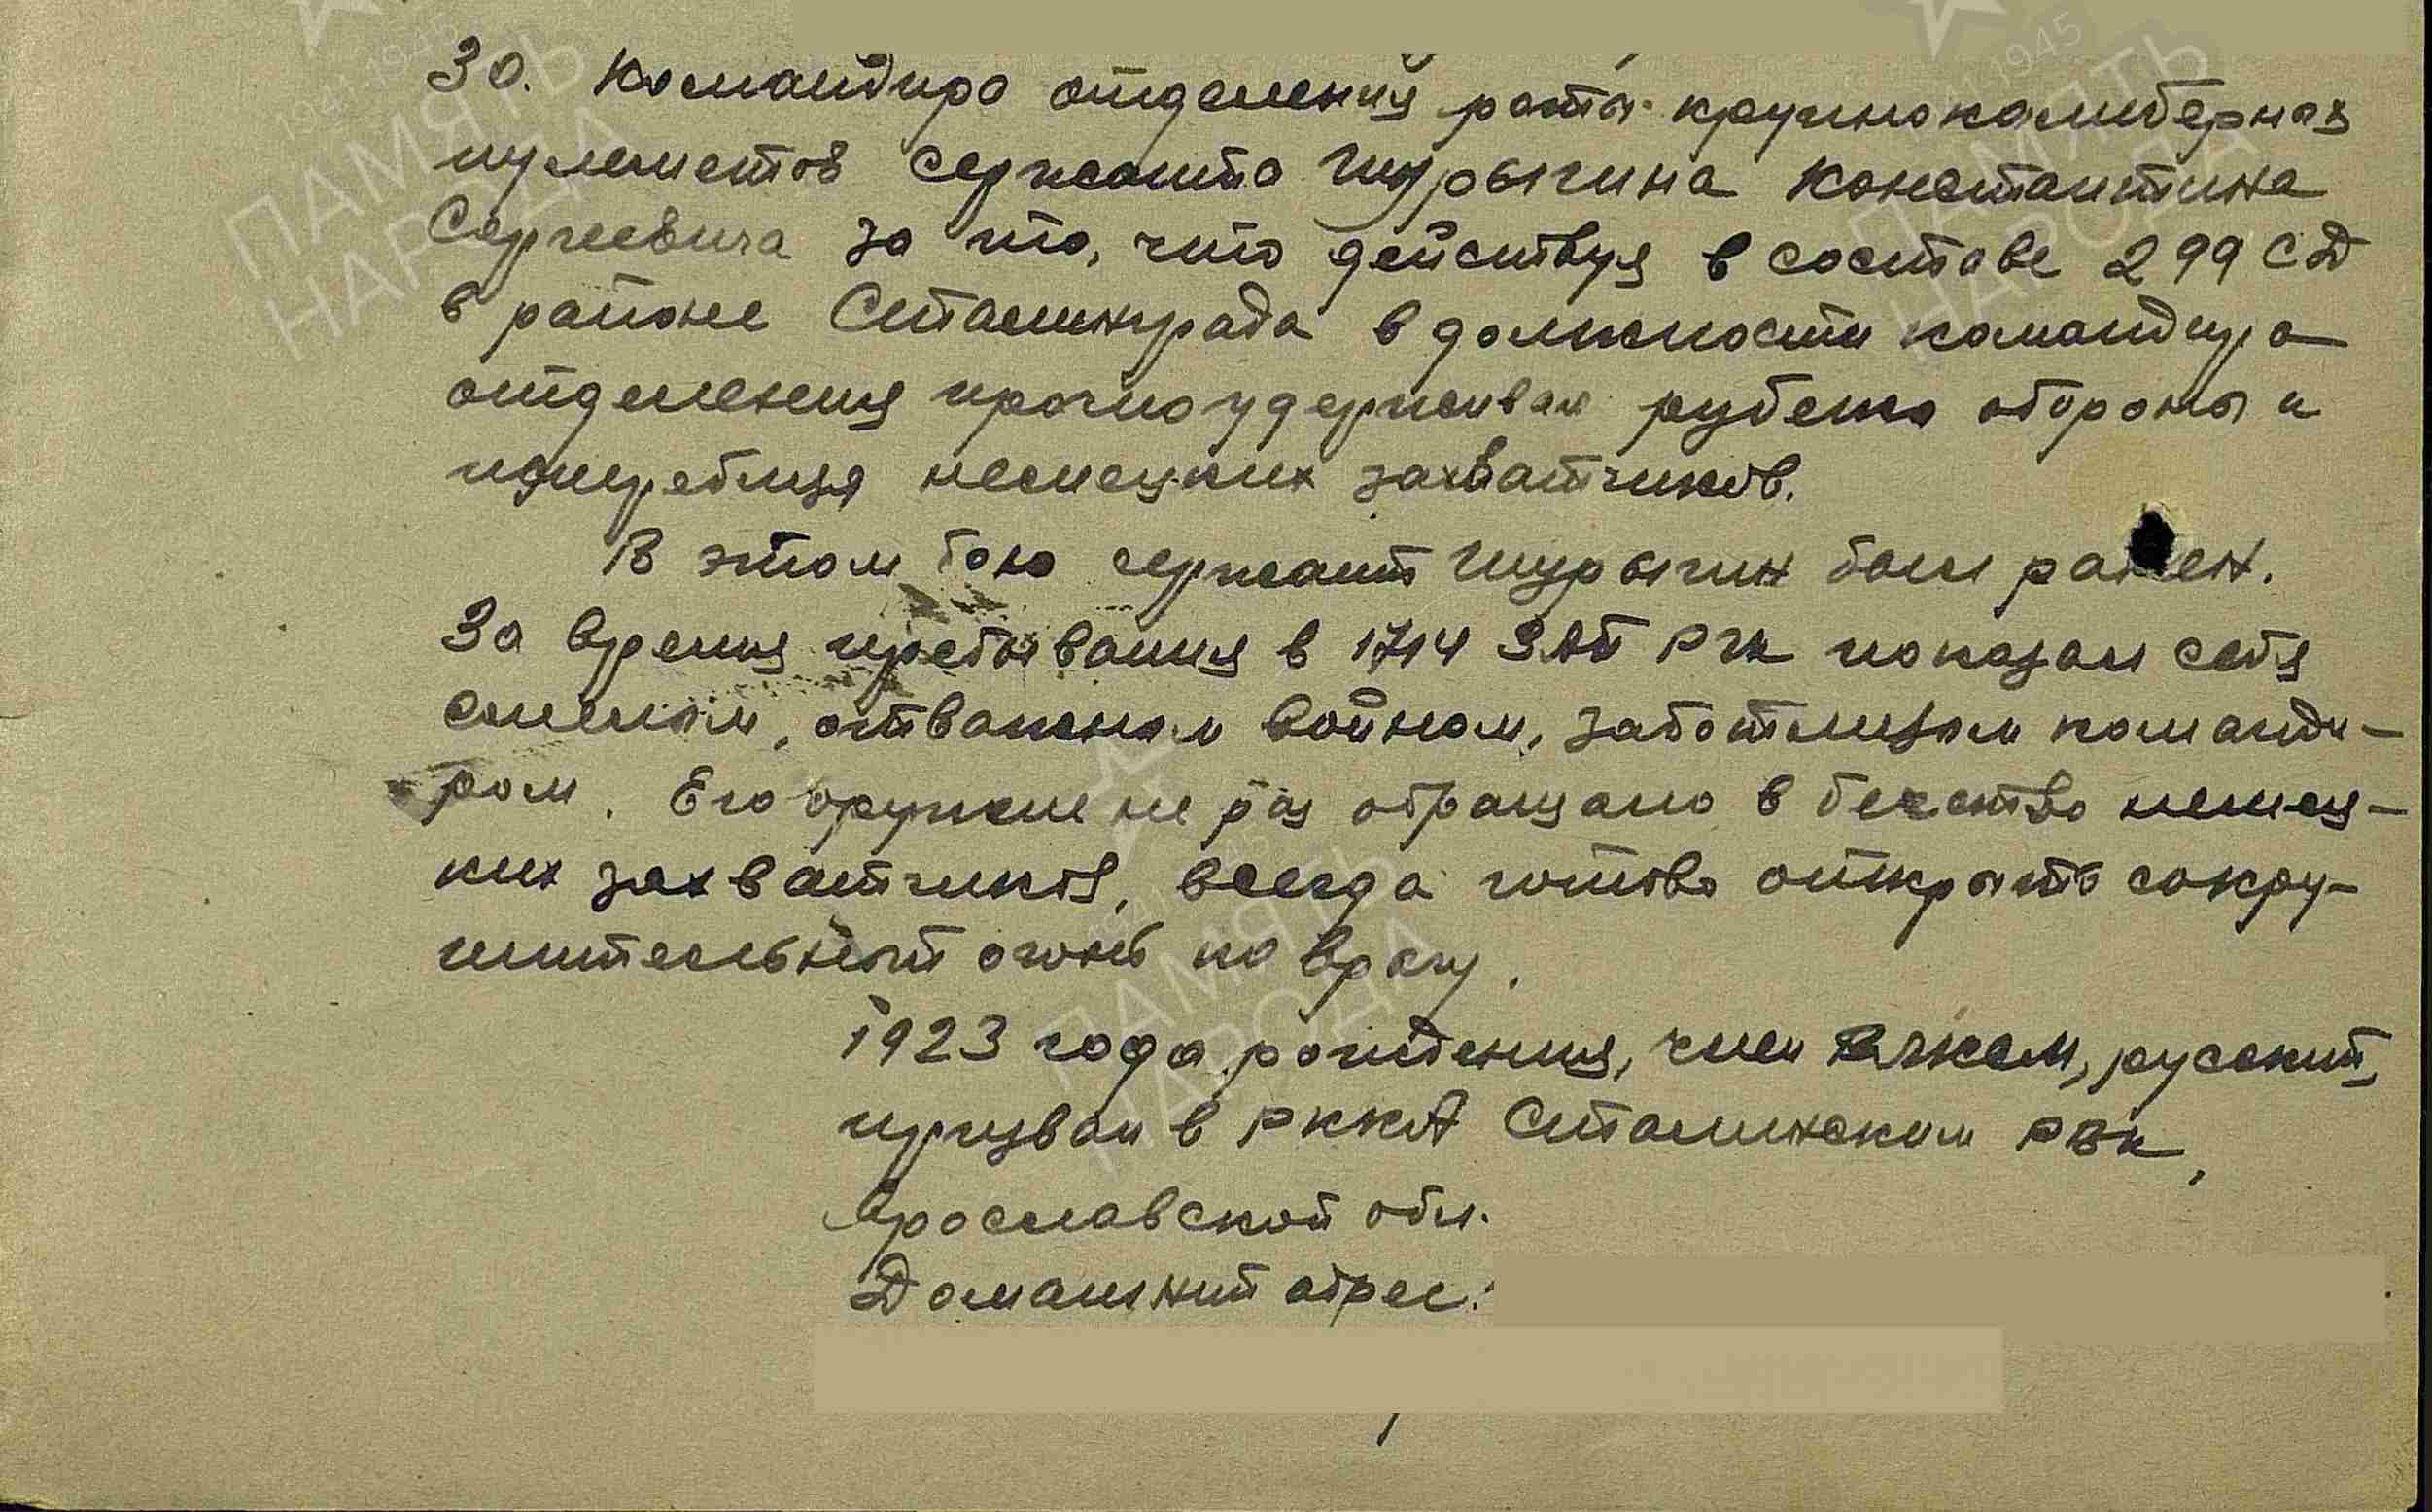 30. Командира отделения роты крупнокалиберных
пулеметов сержанта Шурыгина Константина
Сергеевича за то, что действуя в составе 299 СД
в районе Сталинграда в должности командира
отделения прочно удерживал рубежа обороны и
истреблял немецких захватчиков.
В этом бою сержант Шурыгин был ранен.
За время пребывания в 1714 ЗАП РГК показал себя
смелым, отважным войном, заботливым команди-
ром. Его оружие не раз обращало в бегство немец-
ких захватчиков, всегда готово открыть сокру-
шительный огонь по врагу.
1923 года рождения, член ВЛКСМ, русский,
призван в РККА Сталинским РВК,
Ярославской обл.
Домашний адрес:
1941 1945
ПАМЯТЬ
НАРОДА
1941 1945
ПАМЯТЬ
НАРОДА
ПАМЯТЬ
НАРОДА